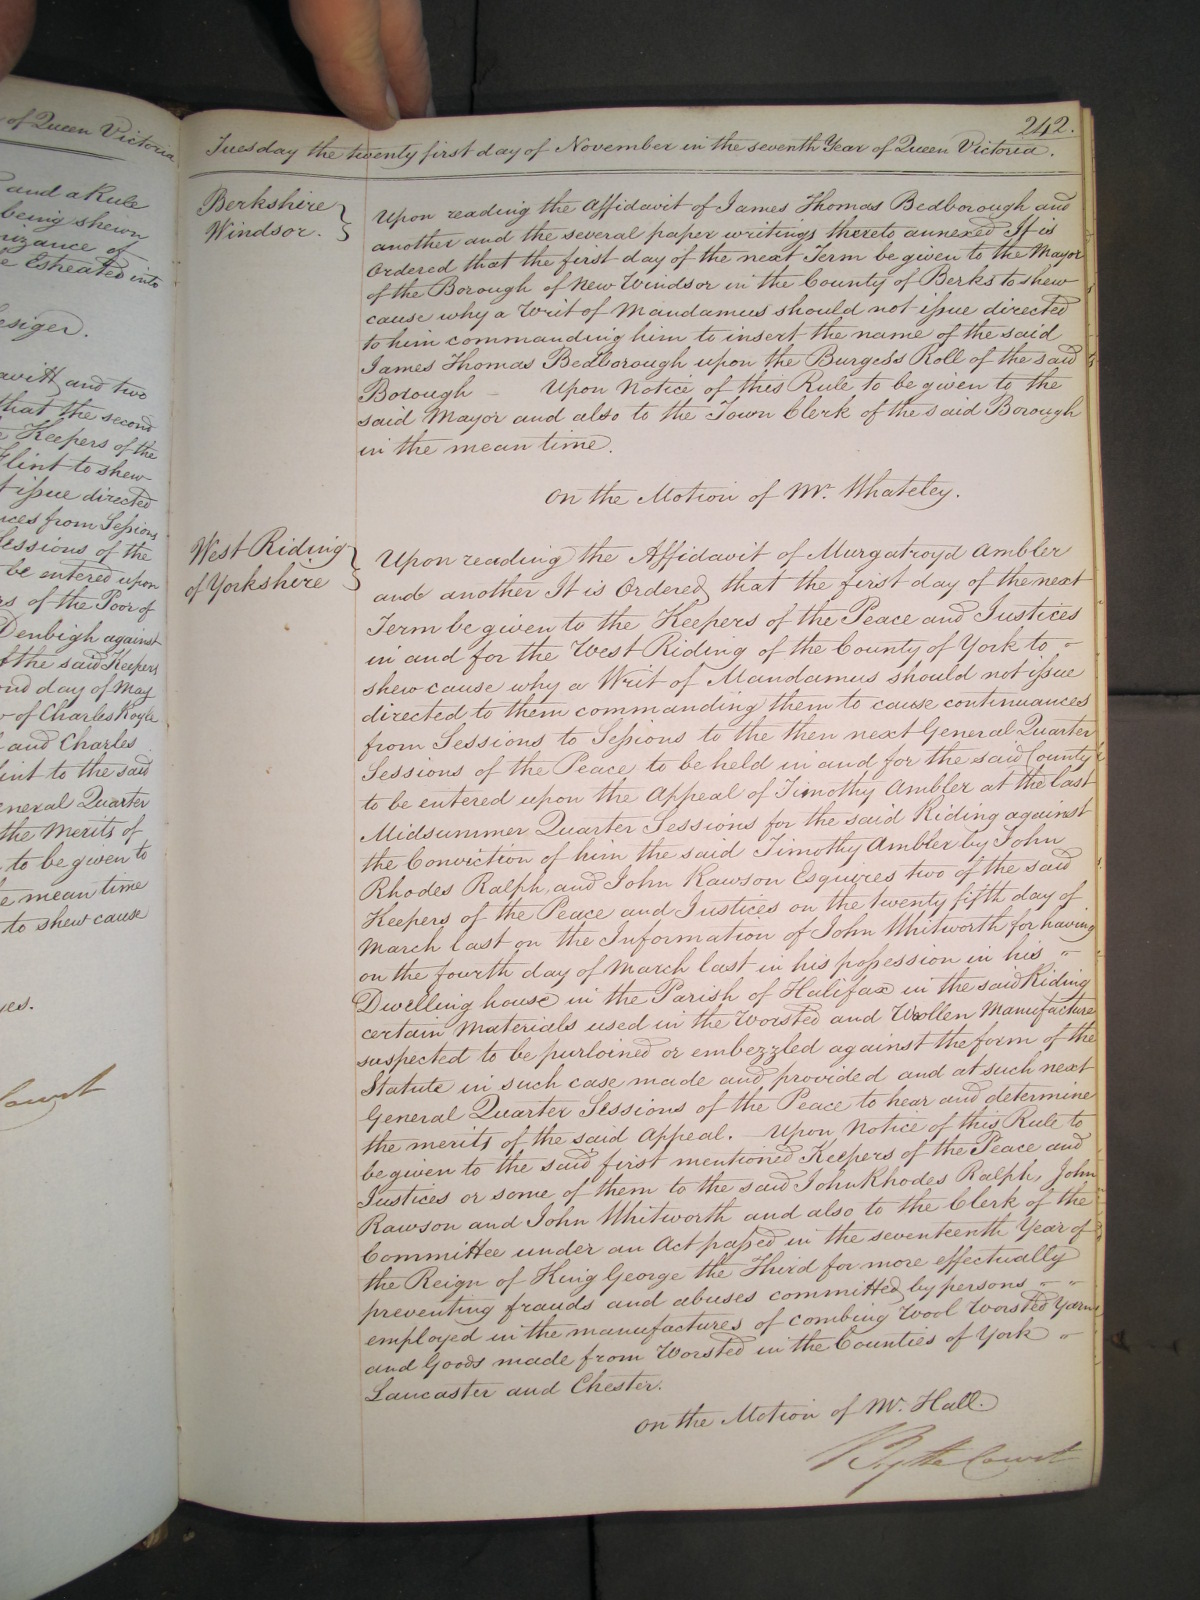 of Queen Victoria
and a Rule
being shewn
nizance of
e Estreated into
esiger.
avitt and two
that the second
e Keepers of the
Flint to shew
t issue directed
nces from Sessions
Sessions of the
be entered upon
rs of the Poor of
Denbigh against
f the said Keepers
ond day of May
of Charles Royle
and Charles
lint to the said
eneral Quarter
the merits of
to be given to
e mean time
to shew cause
yes.
Court
242.
Tuesday the twenty first day of November in the seventh Year of Queen Victoria.
Berkshire
Windsor.
Upon reading the Affidavit of James Thomas Bedborough and
another and the several paper writings thereto annexed It is
Ordered that the first day of the next Term be given to the Mayor
of the Borough of New Windsor in the County of Berks to shew
cause why a Writ of Mandamus should not issue directed
to him commanding him to insert the name of the said
James Thomas Bedborough upon the Burgess Roll of the said
Borough – Upon Notice of this Rule to be given to the
said Mayor and also to the Town Clerk of the said Borough
in the mean time.
On the Motion of Mr. Whateley.
West Riding
of Yorkshire
Upon reading the Affidavit of Murgatroyd Ambler
and another It is Ordered that the first day of the next
Term be given to the Keepers of the Peace and Justices
in and for the West Riding of the County of York to
shew cause why a Writ of Mandamus should not issue
directed to them commanding them to cause continuances
from Sessions to Sessions to the then next General Quarter
Sessions of the Peace to be held in and for the said County
to be entered upon the Appeal of Timothy Ambler at the last
Midsummer Quarter Sessions for the said Riding against
the Conviction of him the said Timothy Ambler by John
Rhodes Ralph and John Rawson Esquires two of the said
Keepers of the Peace and Justices on the twenty fifth day of
March last on the Information of John Whitworth for having
on the fourth day of March last in his possession in his
Dwelling house in the Parish of Halifax in the said Riding
certain Materials used in the Worsted and Woollen Manufacture
suspected to be purloined or embezzled against the form of the
Statute in such case made and provided and at such next
General Quarter Sessions of the Peace to hear and determine
the merits of the said Appeal. – Upon Notice of this Rule to
be given to the said first mentioned Keepers of the Peace and
Justices or some of them to the said John Rhodes Ralph, John
Rawson and John Whitworth and also to the Clerk of the
Committee under an Act passed in the seventeenth Year of
the Reign of King George the Third for more effectually
preventing frauds and abuses committed by persons
employed in the manufactures of combing Wool Worsted Yarn
and Goods made from Worsted in the Counties of York
Lancaster and Chester.
On the Motion of Mr. Hall.
By the Court